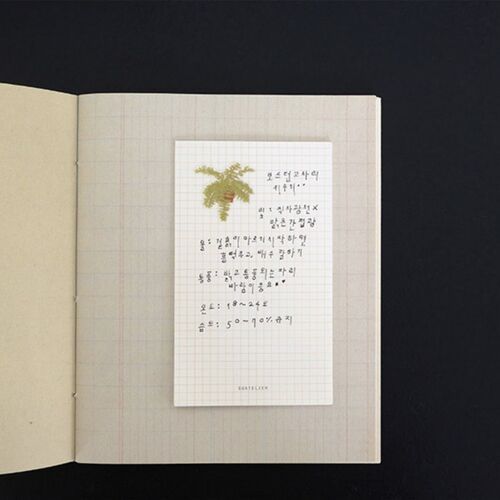 보스턴고사리
키우기..
빛: 직사광선 X
밝은 간접광
물: 겉흙이 마르기 시작하면
흠뻑 주고, 배수 잘하기
통풍: 밝고 통풍되는 자리
바람이 중요
온도: 18~24도
습도: 50~70% 유지